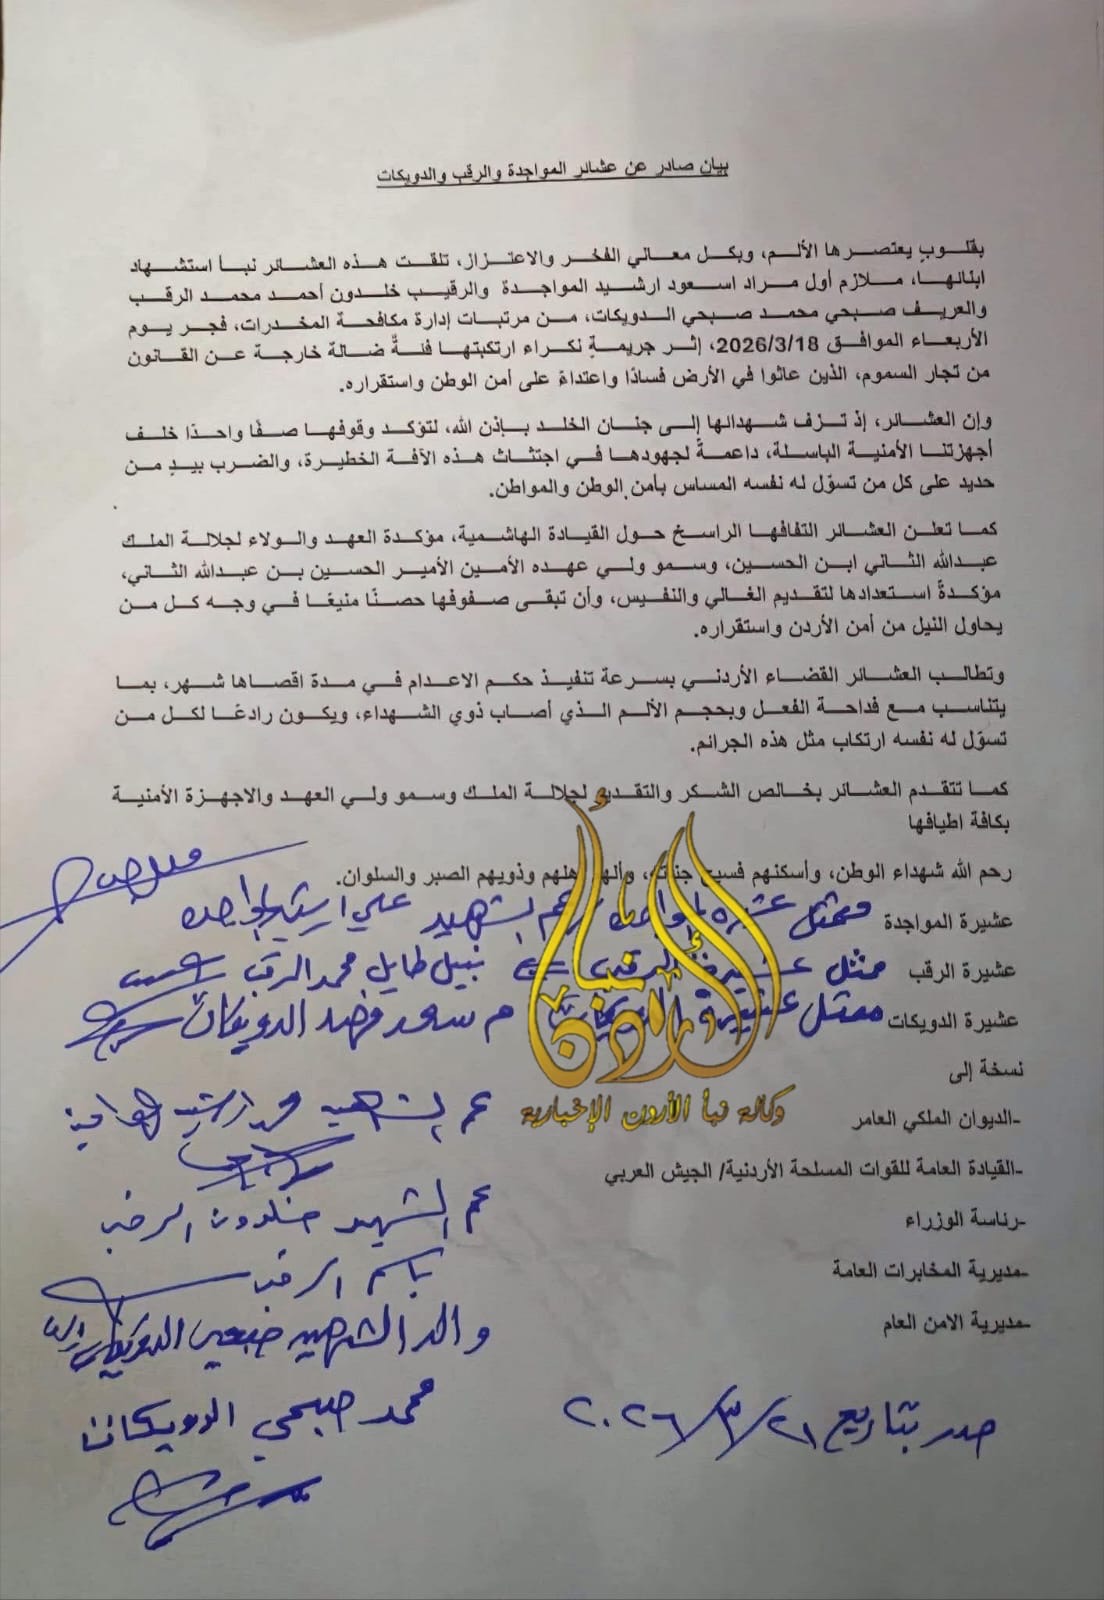 بيان صادر عن عشائر المواجدة والرقب والدويكات
بقلوبٍ يعتصرها الألم، وبكل معالي الفخر والاعتزاز، تلقت هذه العشائر نبأ استشهاد
ابنائها، ملازم أول مراد اسعود ارشيد المواجدة والرقيب خلدون أحمد محمد الرقب
والعريف صبحي محمد صبحي الدويكات، من مرتبات إدارة مكافحة المخدرات، فجر يوم
الأربعاء الموافق 2026/3/18، إثر جريمةٍ نكراء ارتكبتها فئةٌ ضالة خارجة عن القانون
من تجار السموم، الذين عاثوا في الأرض فسادًا واعتداءً على أمن الوطن واستقراره.
وإن العشائر، إذ تزف شهدائها إلى جنان الخلد بإذن الله، لتؤكد وقوفها صفًا واحدًا خلف
أجهزتنا الأمنية الباسلة، داعمةً لجهودها في اجتثاث هذه الآفة الخطيرة، والضرب بيدٍ من
حديد على كل من تسوّل له نفسه المساس بأمن الوطن والمواطن.
كما تعلن العشائر التفافها الراسخ حول القيادة الهاشمية، مؤكدة العهد والولاء لجلالة الملك
عبدالله الثاني ابن الحسين، وسمو ولي عهده الأمين الأمير الحسين بن عبدالله الثاني،
مؤكدةً استعدادها لتقديم الغالي والنفيس، وأن تبقى صفوفها حصنًا منيعًا في وجه كل من
يحاول النيل من أمن الأردن واستقراره.
وتطالب العشائر القضاء الأردني بسرعة تنفيذ حكم الاعدام في مدة اقصاها شهر، بما
يتناسب مع فداحة الفعل وبحجم الألم الذي أصاب ذوي الشهداء، ويكون رادعًا لكل من
تسوّل له نفسه ارتكاب مثل هذه الجرائم.
كما تتقدم العشائر بخالص الشكر والتقدير لجلالة الملك وسمو ولي العهد والاجهزة الأمنية
بكافة اطيافها
رحم الله شهداء الوطن، وأسكنهم فسيح جناته، وألهم أهلهم وذويهم الصبر والسلوان.
عشيرة المواجدة ممثل عشيرة المواجدة عم الشهيد علي ارشيد المواجدة
عشيرة الرقب ممثل عشيرة الرقب نبيل طايل محمد الرقب
عشيرة الدويكات ممثل عشيرة الدويكات م سعد فهد الدويكات
نسخة إلى
-الديوان الملكي العامر
عم الشهيد ارشيد المواجدة
-القيادة العامة للقوات المسلحة الأردنية/ الجيش العربي
عم الشهيد خلدون الرقب
-رئاسة الوزراء
باسم الرقب
-مديرية المخابرات العامة
والد الشهيد صبحي الدويكات
-مديرية الامن العام
محمد صبحي الدويكات
صدر بتاريخ ٢٠٢٦/٣/٢١
نبأ الأردن
وكالة نبأ الأردن الإخبارية